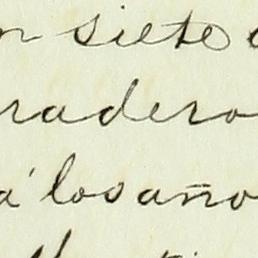 n siete
radero
a' los año